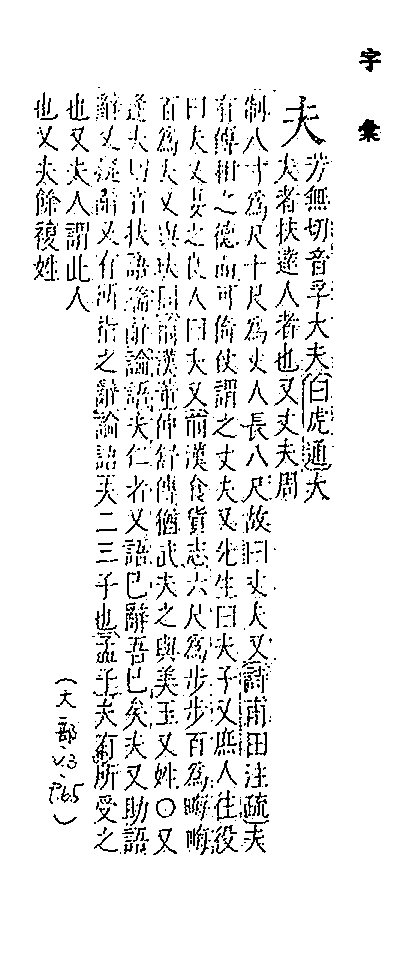 字彙
夫 芳無切音孚大夫白虎通大
夫者扶達人者也又丈夫周
制八寸為尺十尺為丈人長八尺故曰丈夫又詩甫田注疏夫
有傅相之德而可倚仗謂之丈夫又先生曰夫子又庶人往役
曰夫又妻之良人曰夫又前漢食貨志六尺為步步百為畮畮
百為夫又與玞同前漢董仲舒傳猶武夫之與美玉又姓〇又
逢夫切音扶語端辭論語夫仁者又語已辭吾已矣夫又助語
辭又疑辭又有所指之辭論語夫二三子也孟子夫有所受之
也又夫人謂此人
也又夫餘複姓
(大部、V.3、P.65)